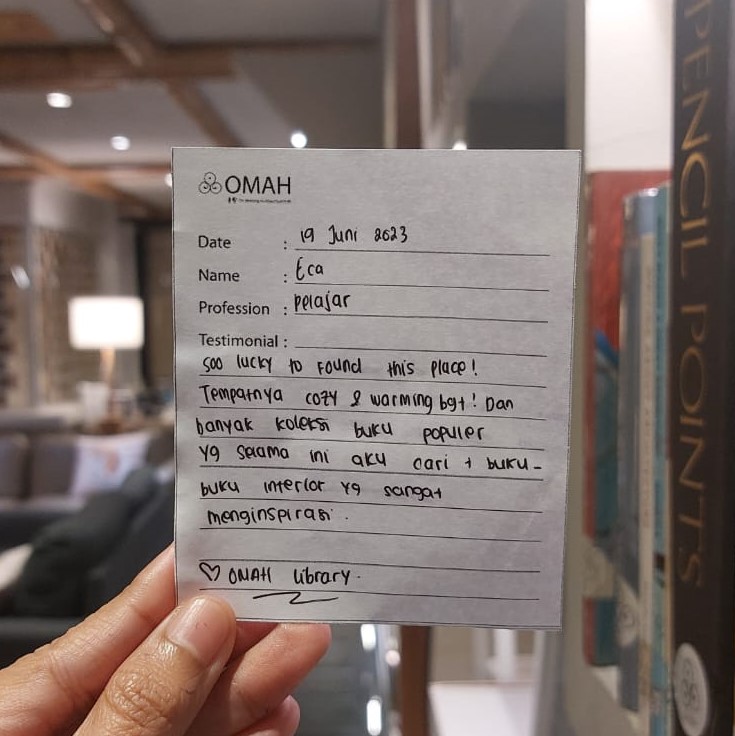 OMAH
Date : 19 Juni 2023
Name : Eca
Profession : pelajar
Testimonial :
soo lucky to found this place!
Tempatnya cozy & warming bgt! Dan
banyak koleksi buku populer
yg selama ini aku cari + buku-
buku interior yg sangat
menginspirasi.
♡ OMAH library.
PENCIL POINTS